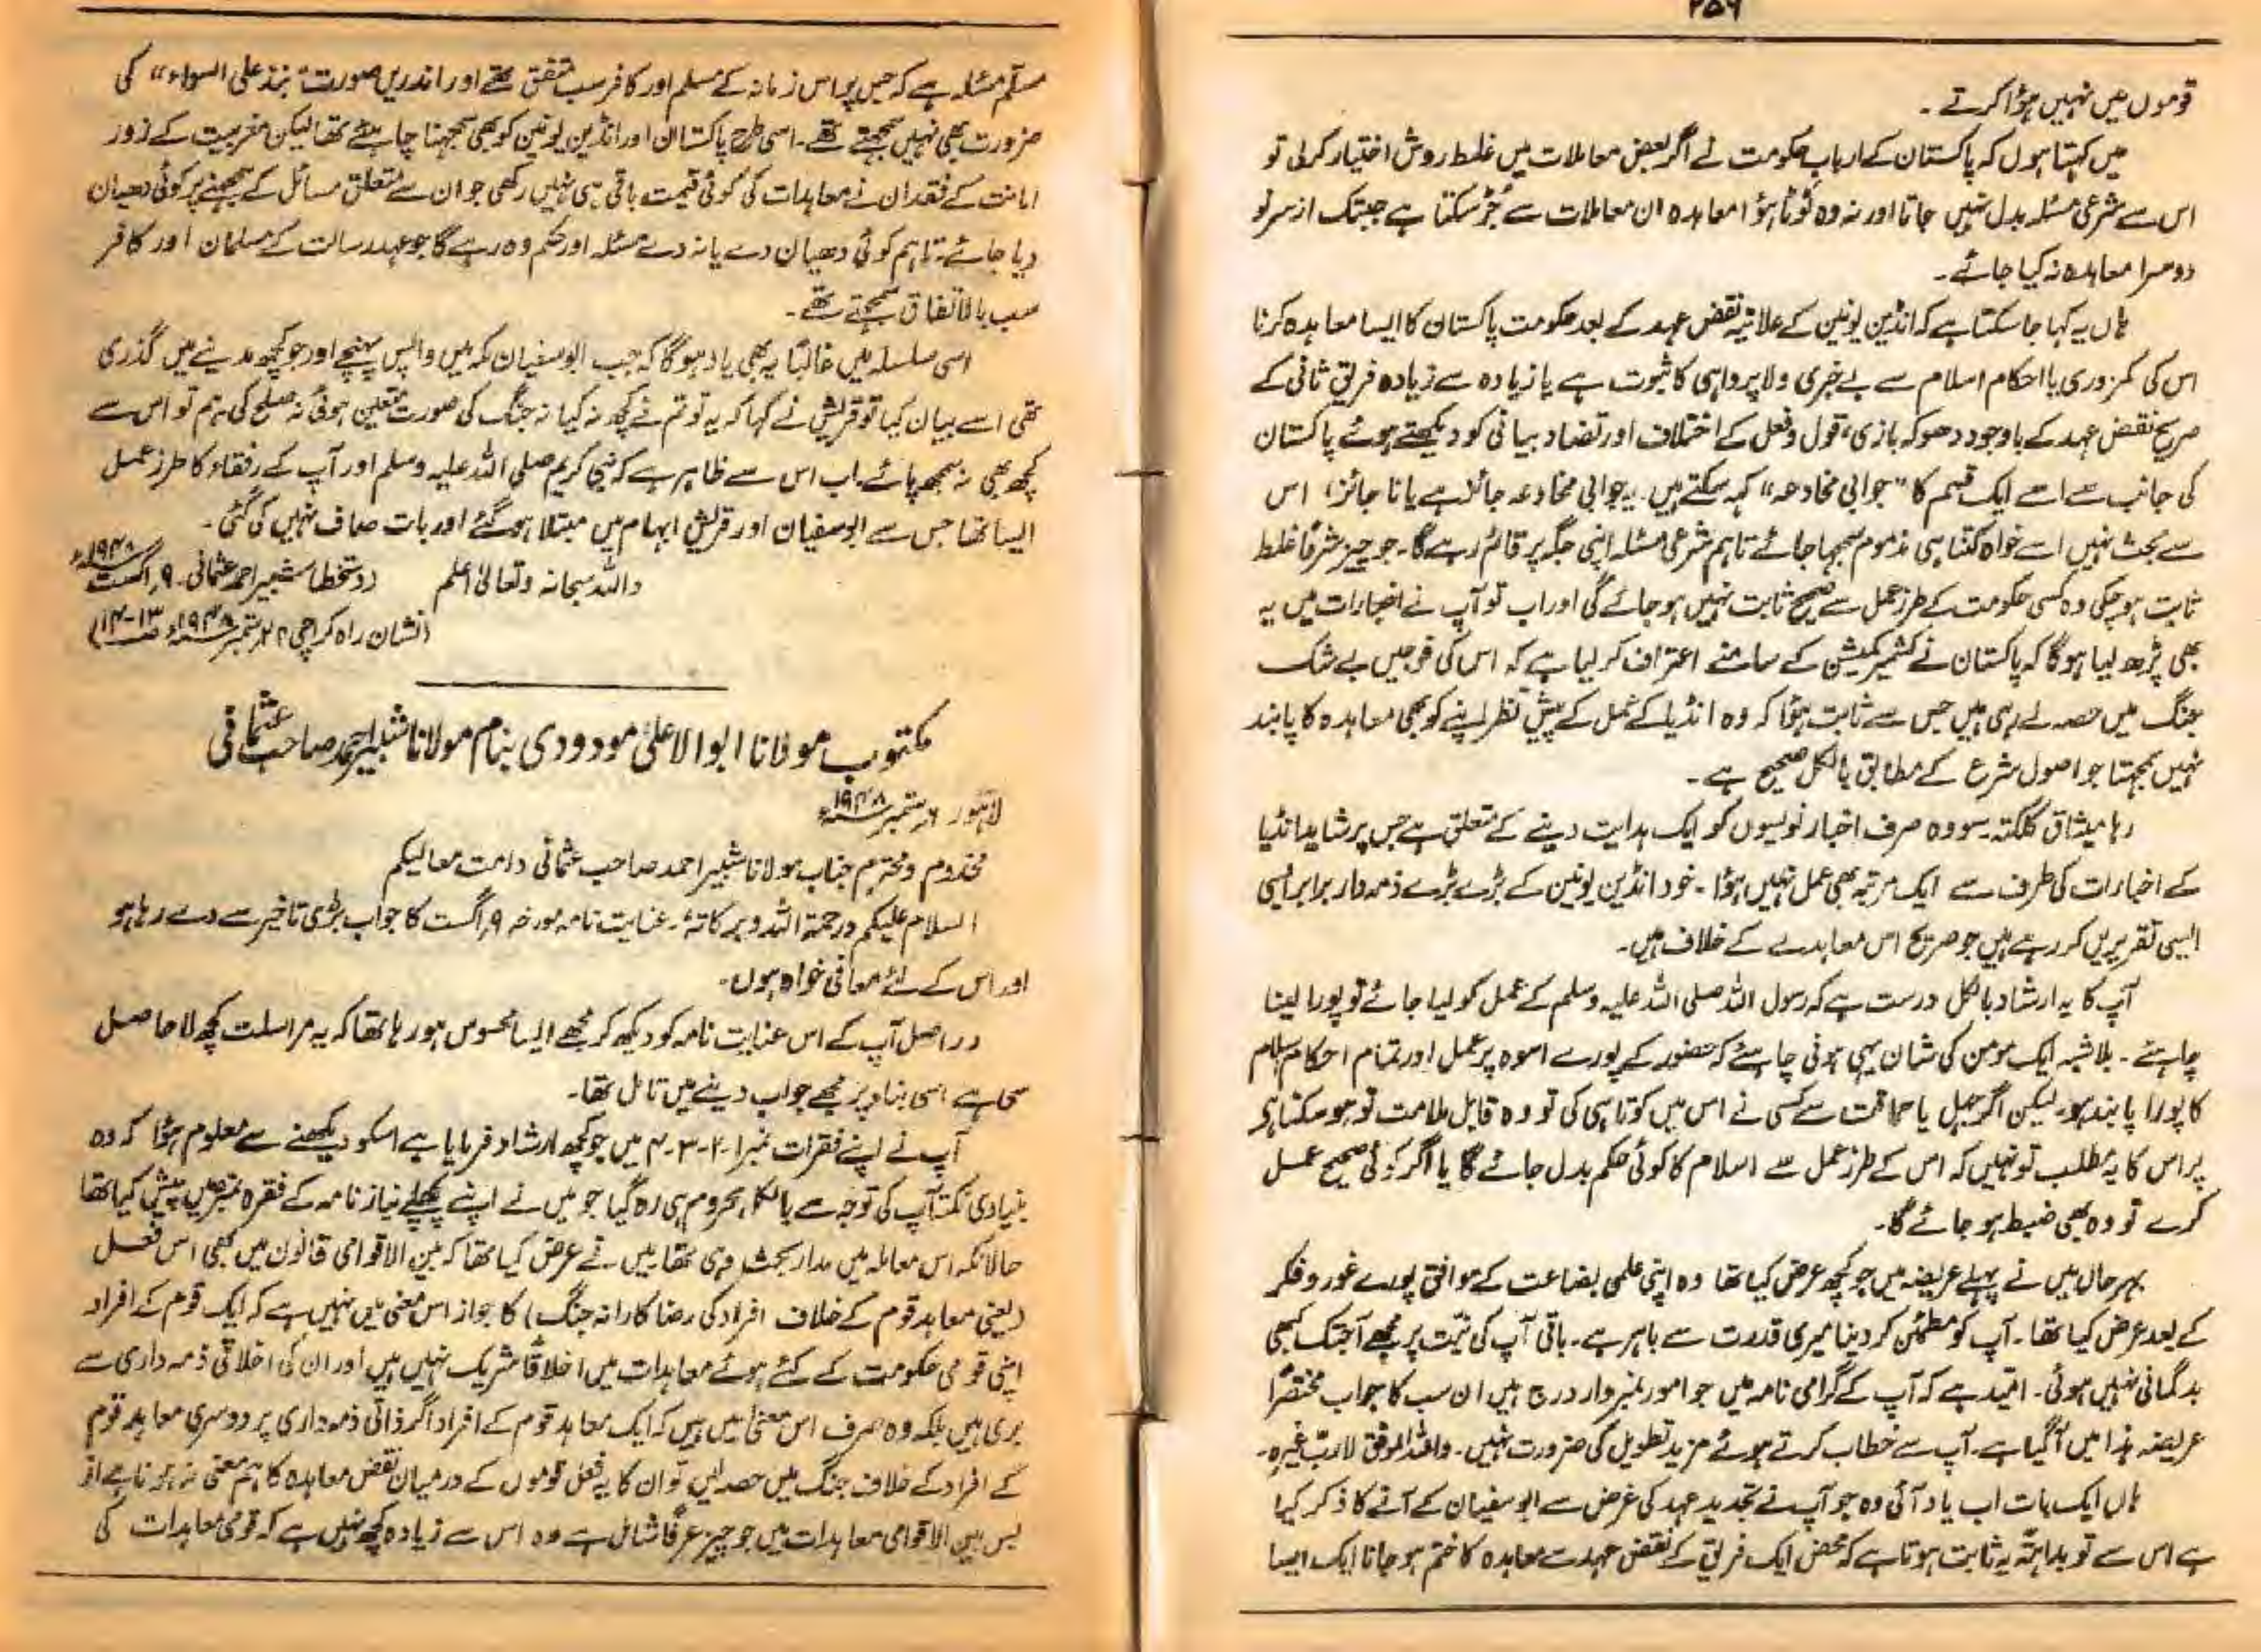 ۲۵۶
قوموں میں نہیں ہؤا کرتے ۔
میں کہتا ہوں کہ پاکستان کے ارباب حکومت نے اگر بعض معاملات میں غلط روش اختیار کر لی تو
اس سے شرعی مسئلہ بدل نہیں جاتا اور نہ وہ ٹوٹا ہؤا معاہدہ ان معاملات سے جُڑ سکتا ہے جبتک از سر نو
دوسرا معاہدہ نہ کیا جائے ۔
ہاں یہ کہا جا سکتا ہے کہ انڈین یونین کے علانیہ نقض عہد کے بعد حکومت پاکستان کا ایسا معاہدہ کرنا
اس کی کمزوری یا احکام اسلام سے بے خبری و لاپرواہی کا ثبوت ہے یا زیادہ سے زیادہ فریق ثانی کے
صریح نقض عہد کے باوجود دھوکہ بازی، قول و فعل کے اختلاف اور تضاد بیانی کو دیکھتے ہوئے پاکستان
کی جانب سے اسے ایک قسم کا "جوابی مخادعہ" کہہ سکتے ہیں۔ یہ جوابی مخادعہ جائز ہے یا نا جائز، اس
سے بحث نہیں اسے خواہ کتنا ہی مذموم سمجہا جائے تاہم شرعی مسئلہ اپنی جگہ پر قائم رہے گا۔ جو چیز شرعًا غلط
ثابت ہو چکی وہ کسی حکومت کے طرز عمل سے صحیح ثابت نہیں ہو جائے گی اور اب تو آپ نے اخبارات میں یہ
بھی پڑھ لیا ہوگا کہ پاکستان نے کشمیر کمیشن کے سامنے اعتراف کر لیا ہے کہ اس کی فوجیں بے شک
جنگ میں حصہ لے رہی ہیں جس سے ثابت ہؤا کہ وہ انڈیا کے عمل کے پیش نظر اپنے کو بھی معاہدہ کا پابند
نہیں سمجہتا جو اصول شرع کے مطابق بالکل صحیح ہے ۔
رہا میثاق کلکتہ۔ سو وہ صرف اخبار نویسوں کو ایک ہدایت دینے کے متعلق ہے جس پر شاید انڈیا
کے اخبارات کی طرف سے ایک مرتبہ بھی عمل نہیں ہؤا ۔ خود انڈین یونین کے بڑے بڑے ذمہ دار برابر ایسی
ایسی تقریریں کر رہے ہیں جو صریح اس معاہدے کے خلاف ہیں۔
آپ کا یہ ارشاد بالکل درست ہے کہ رسول اللہ صلی اللہ علیہ وسلم کے عمل کو لیا جائے تو پورا لینا
چاہئے ۔ بلا شبہ ایک مومن کی شان یہی ہونی چاہئے کہ حضور کے پورے اسوہ پر عمل اور تمام احکام اسلام
کا پورا پابند ہو۔ لیکن اگر جہل یا حماقت سے کسی نے اس میں کوتاہی کی تو وہ قابل ملامت تو ہو سکتا ہے
پر اس کا یہ مطلب تو نہیں کہ اس کے طرز عمل سے اسلام کا کوئی حکم بدل جائے گا یا اگر کوئی صحیح عمل
کرے تو وہ بھی ضبط ہو جائے گا۔
بہر حال میں نے پہلے عریضہ میں جو کچھ عرض کیا تھا وہ اپنی علمی بضاعت کے موافق پورے غور و فکر
کے بعد عرض کیا تھا۔ آپ کو مطمئن کر دینا میری قدرت سے باہر ہے۔ باقی آپ کی نیّت پر مجھے آجتک کبھی
بدگمانی نہیں ہوئی۔ امّید ہے کہ آپ کے گرامی نامہ میں جو امور نمبر وار درج ہیں ان سب کا جواب مختصرًا
عریضہ ہذا میں آگیا ہے۔ آپ سے خطاب کرتے ہوئے مزید تطویل کی ضرورت نہیں۔ واللہ الموفق لا رب غیرہ۔
ہاں ایک بات اب یاد آئی وہ جو آپ نے تجدید عہد کی غرض سے ابو سفیان کے آنے کا ذکر کیا
ہے اس سے تو بداہۃً یہ ثابت ہوتا ہے کہ محض ایک فریق کے نقض عہد سے معاہدہ کا ختم ہو جانا ایک ایسا
مسلّم مسئلہ ہے کہ جس پر اس زمانہ کے مسلم اور کافر سب متفق تھے اور اندریں صورت "نبذ علی السواء" کی
ضرورت بھی نہیں سمجہتے تھے۔ اسی طرح پاکستان اور انڈین یونین کو بھی سمجہنا چاہئے تھا لیکن مغربیت کے زور
امانت کے فقدان نے معاہدات کی کوئی قیمت باقی ہی نہیں رکھی جو ان سے متعلق مسائل کے سمجہنے پر کوئی دھیان
دیا جائے۔ تاہم کوئی دھیان دے یا نہ دے مسئلہ اور حکم وہ رہے گا جو عہد رسالت کے مسلمان اور کافر
سب بالاتفاق سمجہتے تھے ۔
اسی سلسلہ میں غالبًا یہ بھی یاد ہوگا کہ جب ابو سفیان مکہ میں واپس پہنچے اور جو کچھ مدینے میں گذری
تھی اسے بیان کیا تو قریش نے کہا کہ یہ تو تم نے کچھ نہ کیا نہ جنگ کی صورت متعین ہوئی نہ صلح کی ہم تو اس سے
کچھ بھی نہ سمجھ پائے۔ اب اس سے ظاہر ہے کہ نبی کریم صلی اللہ علیہ وسلم اور آپ کے رفقاء کا طرز عمل
ایسا تھا جس سے ابو سفیان اور قریش ابہام میں مبتلا ہوگئے اور بات صاف نہیں کی گئی ۔
واللہ سبحانہ وتعالیٰ اعلم (دستخط) شبیر احمد عثمانی۔ ۹ اگست ۱۹۴۸ء
(نشان راہ کراچی ۲۲ ستمبر ۱۹۴۸ء ص ۱۳-۱۴)
مکتوب مولانا ابو الاعلیٰ مودودی بنام مولانا شبیر احمد صاحب عثمانی
لاہور ۶ ستمبر ۱۹۴۸ء
مخدوم و محترم جناب مولانا شبیر احمد صاحب عثمانی دامت معالیکم
السلام علیکم ورحمۃ اللہ وبرکاتہ ۔ عنایت نامہ مورخہ ۹ اگست کا جواب بڑی تاخیر سے دے رہا ہو
اور اس کے لئے معافی خواہ ہوں۔
دراصل آپ کے اس عنایت نامہ کو دیکھ کر مجھے ایسا محسوس ہو رہا تھا کہ یہ مراسلت کچھ لاحاصل
سی ہے اسی بناء پر مجھے جواب دینے میں تامل تھا۔
آپ نے اپنے فقرات نمبر ۱-۲-۳-۴ میں جو کچھ ارشاد فرمایا ہے اسکو دیکھنے سے معلوم ہؤا کہ وہ
بنیادی نکتہ آپ کی توجہ سے بالکل محروم ہی رہ گیا جو میں نے اپنے پچھلے نیاز نامہ کے فقرہ نمبر میں پیش کیا تھا
حالانکہ اس معاملہ میں مدار بحث وہی تھا۔ میں نے عرض کیا تھا کہ بین الاقوامی قانون میں کبھی اس فعل
(یعنی معاہد قوم کے خلاف افراد کی رضا کارانہ جنگ) کا جواز اس معنی میں نہیں ہے کہ ایک قوم کے افراد
اپنی قومی حکومت کے کئے ہوئے معاہدات میں اخلاقًا شریک نہیں ہیں اور ان کی اخلاقی ذمہ داری سے
بری ہیں بلکہ وہ صرف اس معنی میں ہیں کہ ایک معاہد قوم کے افراد اگر ذاتی ذمہ داری پر دوسری معاہد قوم
کے افراد کے خلاف جنگ میں حصہ لیں تو ان کا یہ فعل قوموں کے درمیان نقض معاہدہ کا ہم معنی نہ ہو
بس بین الاقوامی معاہدات میں جو چیز عرفًا شامل ہے وہ اس سے زیادہ کچھ نہیں ہے کہ قومی معاہدات کی